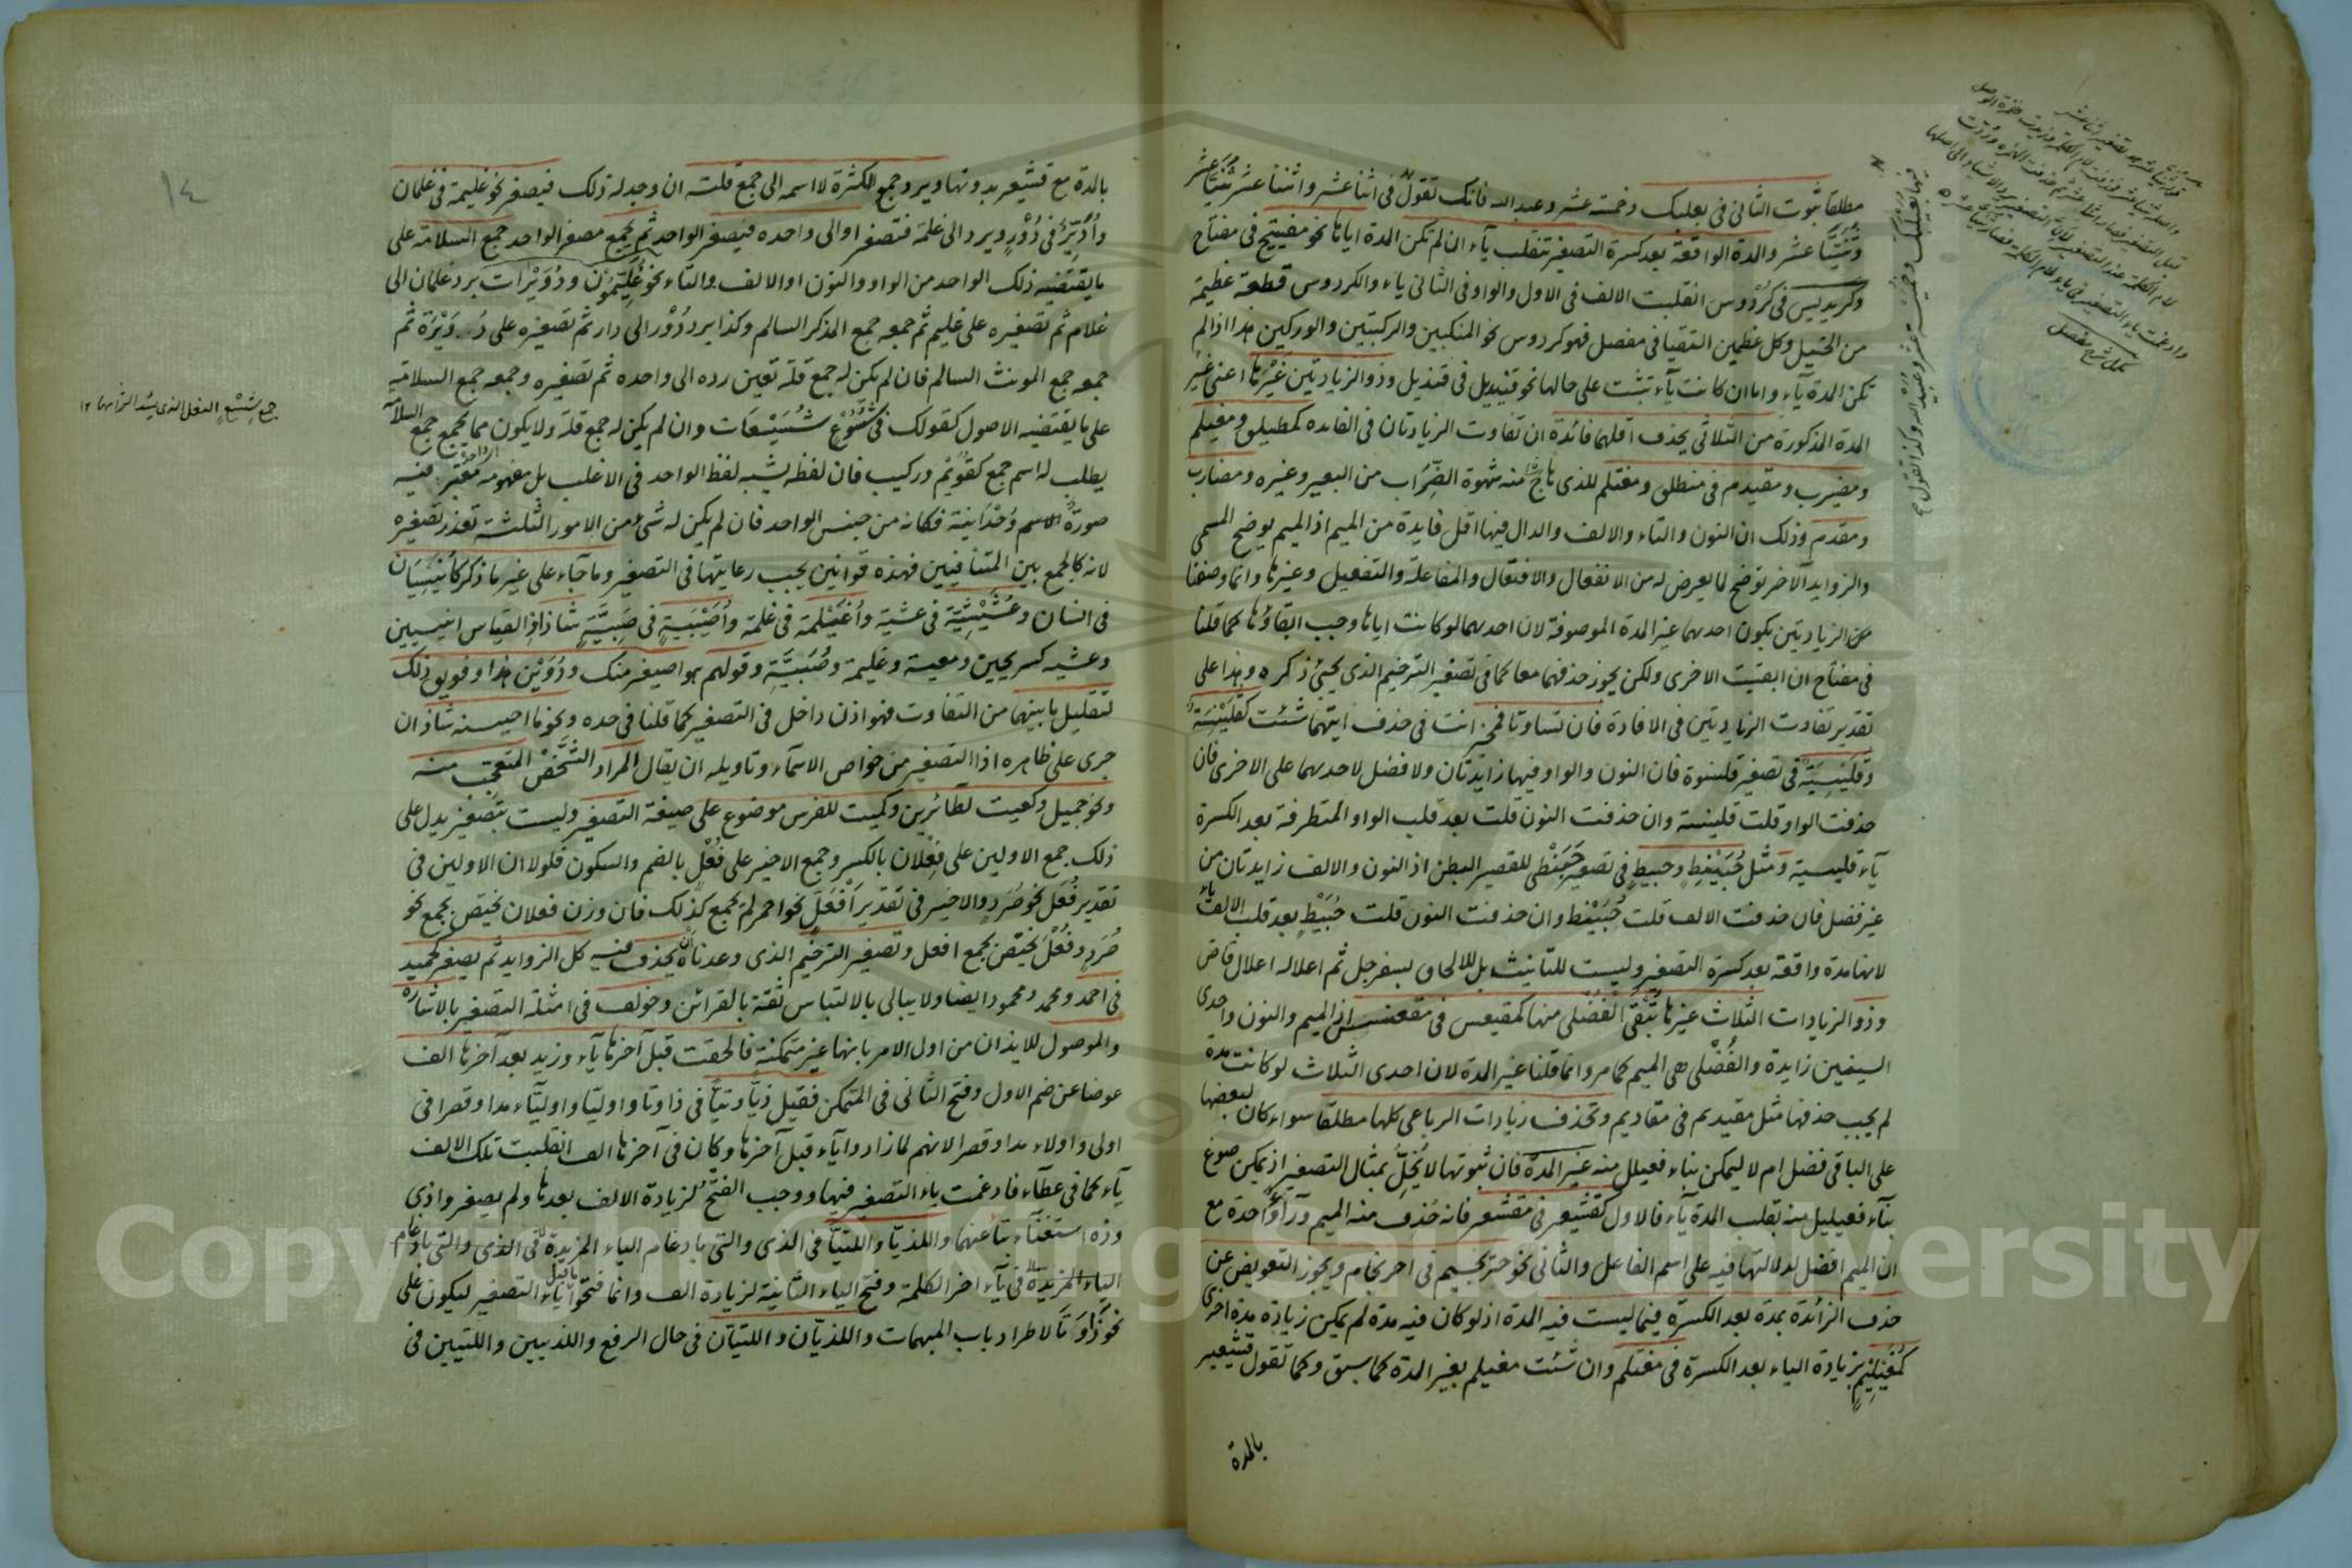 مطلقا ثبوت الثانى فى بعلبك وخمسة عشر وعبد الله فانك تقول فى اثنا عشر واثنتا عشر ثنيا عشر
وثنيتا عشر والمدة الواقعة بعد كسرة التصغير تنقلب ياء ان لم تكن المدة اياها نحو مفيتيح فى مفتاح
وكريديس فى كردوس انقلبت الالف فى الاول والواو فى الثانى ياء والكردوس قطعة عظيمة
من الخيل وكل عظمين التقيا فى مفصل فهو كردوس نحو المنكبين والركبتين والوركين هذا اذا لم
تكن المدة ياء واما ان كانت ياء تثبت على حالها نحو قنيديل فى قنديل وذو الزيادتين غيرها اعنى غير
المدة المذكورة من الثلاثى يحذف اقلهما فائدة ان تفاوت الزيادتان فى الفائدة كمطيلق ومغيلم
ومضيرب ومقيدم فى منطلق ومغتلم للذى هاج منه شهوة الضراب من البعير وغيره ومضارب
ومقدم وذلك ان النون والتاء والالف والدال فيها اقل فايدة من الميم اذ الميم يوضح المسمى
والزوايد الاخر توضح لما يعرض له من الانفعال والافتعال والمفاعلة والتفعيل وغيرها وانما وصفنا
من الزيادتين بكون احدهما غير المدة الموصوفة لان احدهما لو كانت اياها وجب ابقاؤها كما قلنا
فى مفتاح ان ابقيت الاخرى ولكن يجوز حذفهما معا كما فى تصغير الترخيم الذى يجئ ذكره وهذا على
تقدير تفاوت الزيادتين فى الافادة فان تساوتا فمخير انت فى حذف ايتهما شئت كقلينسة
وقليسية فى تصغير قلنسوة فان النون والواو فيها زايدتان ولا فضل لاحديهما على الاخرى فان
حذفت الواو قلت قلينسة وان حذفت النون قلت بعد قلب الواو المتطرفة بعد الكسرة
ياء قليسية ومثل حبينط وحبيط فى تصغير حبنطى للقصير البطن اذ النون والالف زايدتان من
غير فضل فان حذفت الالف قلت حبينط وان حذفت النون قلت حبيط بعد قلب الالف ياء
لانها مدة واقعة بعد كسرة التصغير وليست للتانيث بل للالحاق بسفرجل ثم اعلاله اعلال قاض
وذو الزيادات الثلاث غيرها تبقى الفضلى منها كمقيعس فى مقعنسس اذ الميم والنون واحدى
السينين زايدة والفضلى هى الميم كما مر وانما قلنا غير المدة لان احدى الثلاث لو كانت مدة
لم يجب حذفها مثل مقيديم فى مقاديم وتحذف زيادات الرباعى كلها مطلقا سواء كان لبعضها
على الباقى فضل ام لا ليمكن بناء فعيلل منه غير المدة فان ثبوتها لا يخل بمثال التصغير اذ يمكن صوغ
بناء فعيليل منه بقلب المدة ياء فالاول كقشيعر فى مقشعر فانه حذف منه الميم وراء واحدة مع
ان الميم افضل لدلالتها فيه على اسم الفاعل والثانى نحو حريجيم فى احرنجام ويجوز التعويض عن
حذف الزائدة بمدة بعد الكسرة فيما ليست فيه المدة اذ لو كان فيه مدة لم يمكن زيادة مدة اخرى
كمغيليم بزيادة الياء بعد الكسرة فى مغتلم وان شئت مغيلم بغير المدة كما سبق وكما تقول قشيعير
بالمدة
فيها بعيلبك وخميسة عشر وعبيد الله وكذا تقول
١٤
بالمدة مع قشيعر بدونها ويرد جمع الكثرة لا اسمه الى جمع قلته ان وجد له ذلك فيصغر نحو غليمة فى غلمان
وادير فى دور ويرد الى غلمة فتصغر او الى واحده فيصغر الواحد ثم يجمع مصغر الواحد جمع السلامة على
ما يقتضيه ذلك الواحد من الواو والنون او الالف والتاء نحو غليمون ودويرات برد غلمان الى
غلام ثم تصغيره على غليم ثم جمعه جمع المذكر السالم وكذا يرد دور الى دار ثم تصغيره على دويرة ثم
جمعه جمع المونث السالم فان لم يكن له جمع قلة تعين رده الى واحده ثم تصغيره وجمعه جمع السلامة
على ما يقتضيه الاصول كقولك فى شسوع شسيعات وان لم يكن له جمع قلة ولا يكون مما يجمع جمع السلامة
جمع شسع النعل الذى يشد الزمامها ١٢
يطلب له اسم جمع كقويم وركيب فان لفظه يشبه لفظ الواحد فى الاغلب بل مفهومه معتبر فيه
صورة الاسم وحدانية فكانه من جنس الواحد فان لم يكن له شئ من الامور الثلثة تعذر تصغيره
لانه كالجمع بين المتنافيين فهذه قوانين يجب رعايتها فى التصغير وما جاء على غير ما ذكر كانيسيان
فى انسان وعشيشية فى عشية واغيلمة فى غلمة واصيبية فى صبية شاذ اذ القياس انيسيين
وعشية كسريحين ومعية وغليمة وصبية وقولهم هو اصيغر منك ودوين هذا وفويق ذلك
لتقليل ما بينهما من التفاوت فهو اذن داخل فى التصغير كما قلنا فى حده ونحو ما احيسنه شاذ ان
جرى على ظاهره اذ التصغير من خواص الاسماء وتاويله ان يقال المراد الشخص المتعجب منه
ونحو جميل وكعيت لطائرين وكميت للفرس موضوع على صيغة التصغير وليست بتصغير يدل على
ذلك جمع الاولين على فعلان بالكسر وجمع الاخير على فعل بالضم والسكون فلولا ان الاولين فى
تقدير فعل نحو صرد والاخير فى تقدير افعل نحو احمر لم يجمع كذلك فان وزن فعلان يختص بجمع نحو
صرد وفعل يختص بجمع افعل وتصغير الترخيم الذى وعدناه ان يحذف فيه كل الزوايد ثم يصغر كحميد
فى احمد ومحمد ومحمود ايضا ولا يبالى بالالتباس ثقة بالقرائن وخولف فى امثلة التصغير بالاشارة
والموصول للايذان من اول الامر بانها غير متمكنة فالحقت قبل آخرها ياء وزيد بعد آخرها الف
عوضا عن ضم الاول وفتح الثانى فى المتمكن فقيل ذيا وتيا فى ذا وتا واوليا واولياء مدا وقصرا فى
اولى واولاء مدا وقصرا لانهم لما زادوا ياء قبل آخرها وكان فى آخرها الف انقلبت تلك الالف
ياء كما فى عطاء فادغمت ياء التصغير فيها ووجب الفتح لزيادة الالف بعدها ولم يصغروا ذى
وذه استغناء بتا عنهما واللذيا واللتيا فى الذى والتى بادغام الياء المزيدة فى الذى والتى بادغام
الياء المزيدة فى ياء اخر الكلمة وفتح الياء الثانية لزيادة الف وانما فتحوا ما قبل ياء التصغير ليكون على
نحو ذا وتا لاطراد باب المبهمات واللذيان واللتيان فى حال الرفع واللذيين واللتيين فى
Copyright © King Saud University